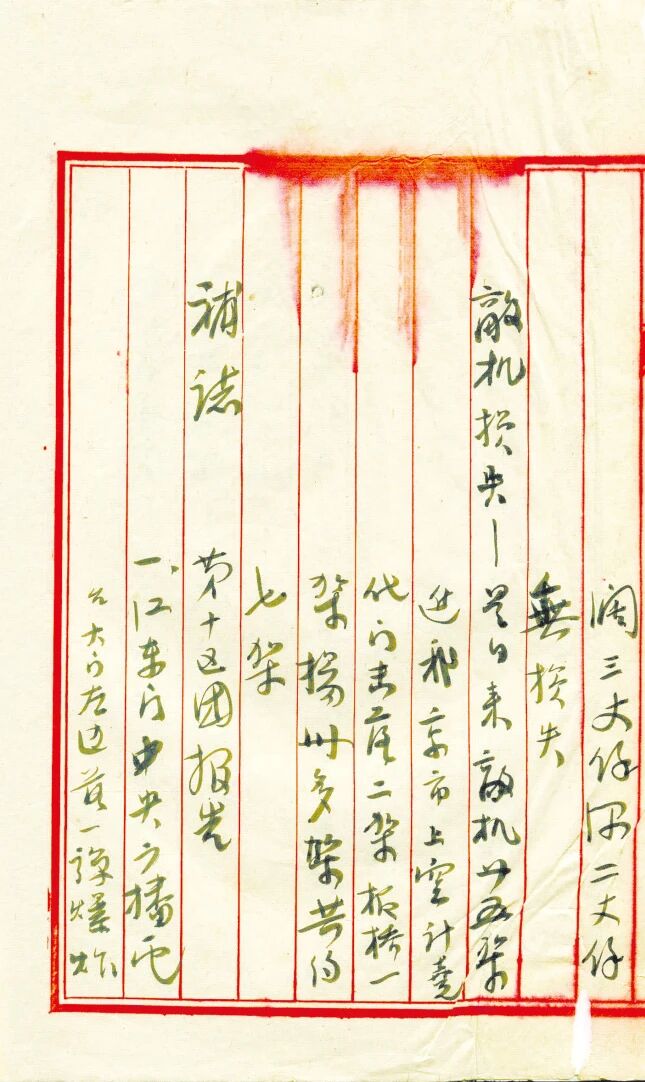 阔三丈仔深二丈仔
無损失
敵机损失—是日来敵机廿五架
進犯京市上空计堯
化门击落二架板桥一
架揚州多架共约
七架
補誌
第十区团报告
一、江东门中央广播电
台大门左边落一弹爆炸